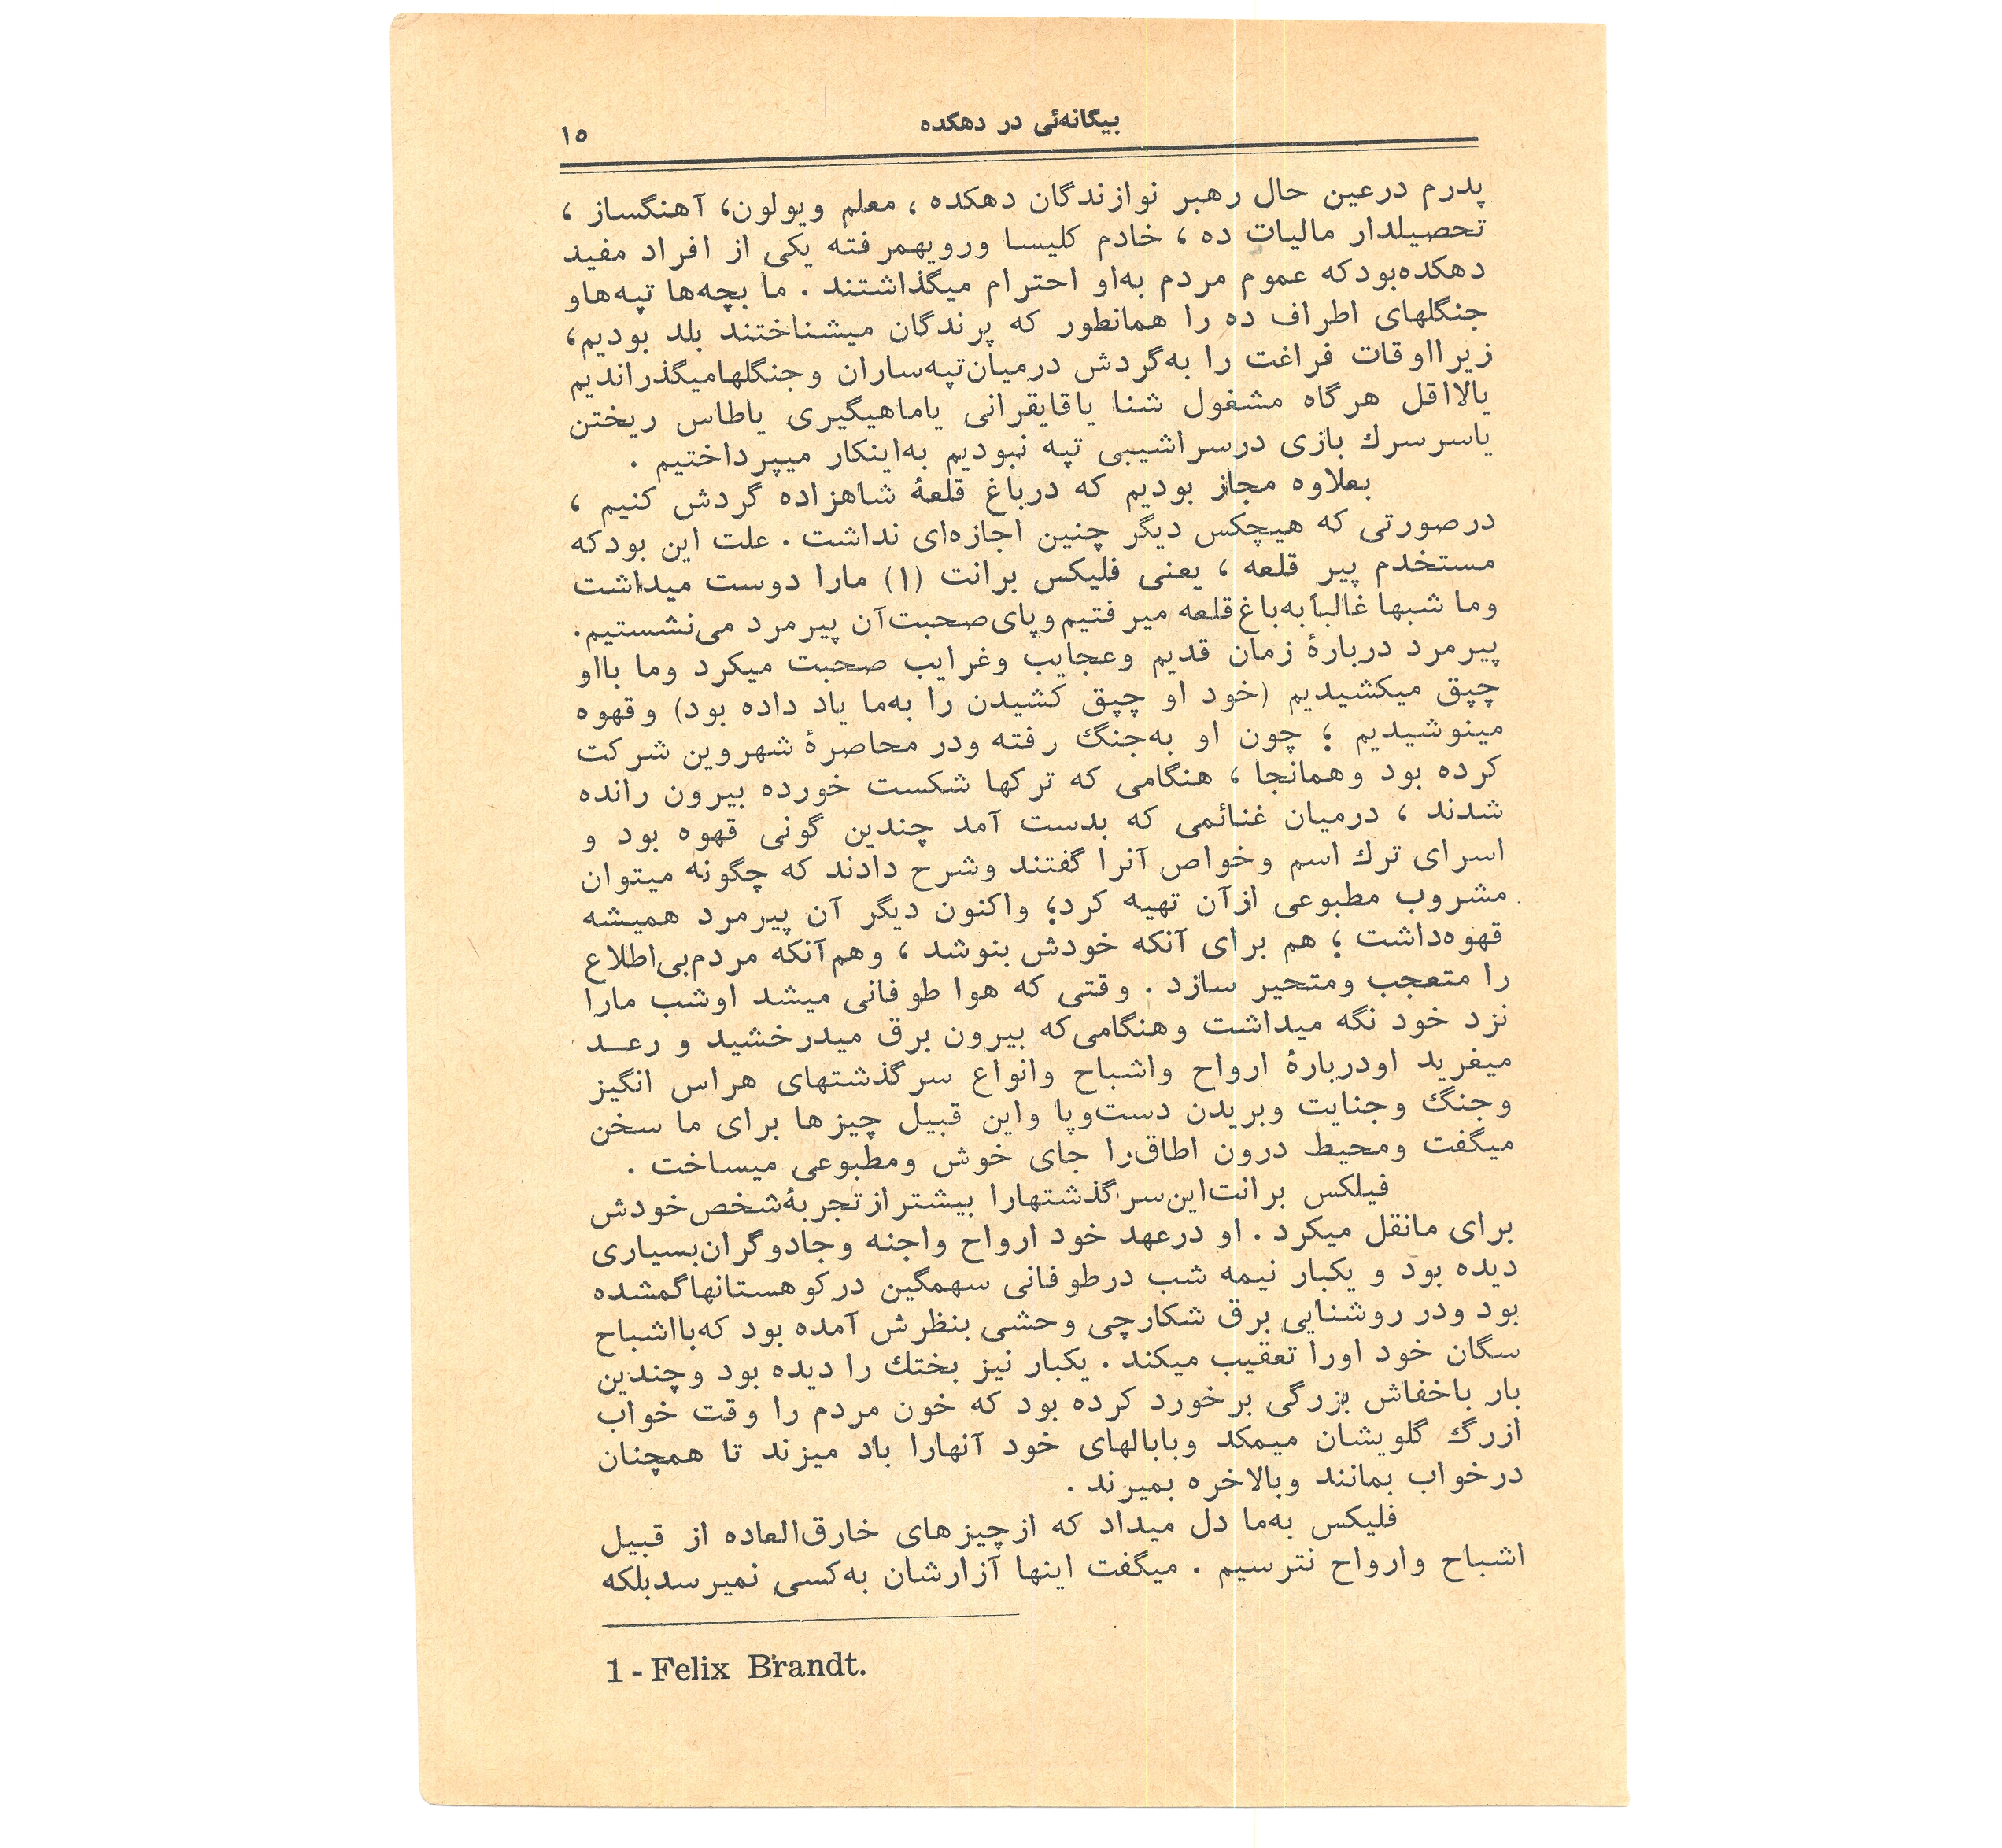 بیگانه‌ئی در دهکده
۱۵
پدرم درعین حال رهبر نوازندگان دهکده ، معلم ویولون، آهنگساز ،
تحصیلدار مالیات ده ، خادم کلیسا ورویهمرفته یکی از افراد مفید
دهکده‌بودکه عموم مردم به‌او احترام میگذاشتند . ما بچه‌ها تپه‌هاو
جنگلهای اطراف ده را همانطور که پرندگان میشناختند بلد بودیم،
زیرااوقات فراغت را به‌گردش درمیان‌تپه‌ساران وجنگلهامیگذراندیم
یالااقل هرگاه مشغول شنا یاقایقرانی یاماهیگیری یاطاس ریختن
یاسرسرك بازی درسراشیبی تپه نبودیم به‌اینکار میپرداختیم .
بعلاوه مجاز بودیم که درباغ قلعهٔ شاهزاده گردش کنیم ،
درصورتی که هیچکس دیگر چنین اجازه‌ای نداشت . علت این بودکه
مستخدم پیر قلعه ، یعنی فلیکس برانت (۱) مارا دوست میداشت
وما شبها غالباً به‌باغ‌قلعه میرفتیم‌وپای‌صحبت‌آن پیرمرد می‌نشستیم.
پیرمرد دربارهٔ زمان قدیم وعجایب وغرایب صحبت میکرد وما بااو
چپق میکشیدیم (خود او چپق کشیدن را به‌ما یاد داده بود) وقهوه
مینوشیدیم ؛ چون او به‌جنگ رفته ودر محاصرهٔ شهروین شرکت
کرده بود وهمانجا ، هنگامی که ترکها شکست خورده بیرون رانده
شدند ، درمیان غنائمی که بدست آمد چندین گونی قهوه بود و
اسرای ترك اسم وخواص آنرا گفتند وشرح دادند که چگونه میتوان
مشروب مطبوعی ازآن تهیه کرد؛ واکنون دیگر آن پیرمرد همیشه
قهوه‌داشت ؛ هم برای آنکه خودش بنوشد ، وهم‌آنکه مردم‌بی‌اطلاع
را متعجب ومتحیر سازد . وقتی که هوا طوفانی میشد اوشب مارا
نزد خود نگه میداشت وهنگامی‌که بیرون برق میدرخشید و رعــد
میغرید اودربارهٔ ارواح واشباح وانواع سرگذشتهای هراس انگیز
وجنگ وجنایت وبریدن دست‌وپا واین قبیل چیزها برای ما سخن
میگفت ومحیط درون اطاق‌را جای خوش ومطبوعی میساخت .
فیلکس برانت‌این‌سرگذشتهارا بیشترازتجربهٔ‌شخص‌خودش
برای مانقل میکرد . او درعهد خود ارواح واجنه وجادوگران‌بسیاری
دیده بود و یکبار نیمه شب درطوفانی سهمگین درکوهستانهاگمشده
بود ودر روشنایی برق شکارچی وحشی بنظرش آمده بود که‌بااشباح
سگان خود اورا تعقیب میکند . یکبار نیز بختك را دیده بود وچندین
بار باخفاش بزرگی برخورد کرده بود که خون مردم را وقت خواب
ازرگ گلویشان میمکد وبابالهای خود آنهارا باد میزند تا همچنان
درخواب بمانند وبالاخره بمیرند .
فلیکس به‌ما دل میداد که ازچیزهای خارق‌العاده از قبیل
اشباح وارواح نترسیم . میگفت اینها آزارشان به‌کسی نمیرسدبلکه
1 - Felix Brandt.